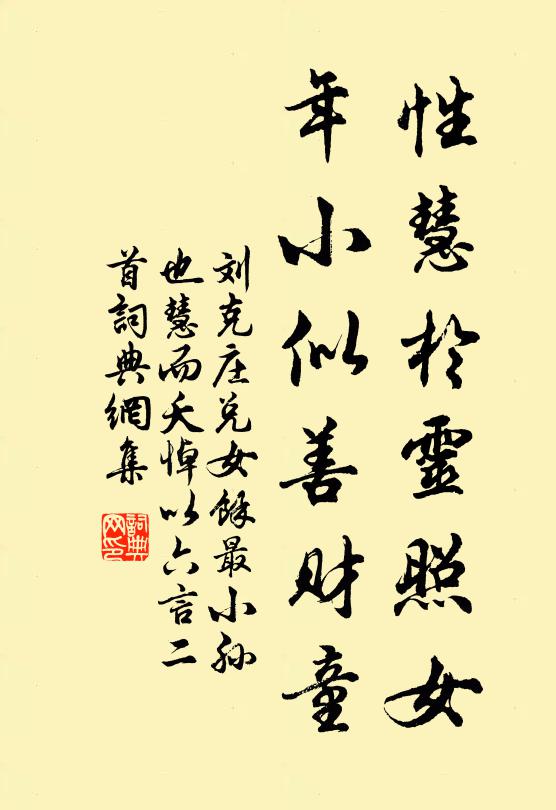 性慧於靈照女
年小似善财童
刘克庄兑女餘最小孙
也慧而夭悼以六言二
首詞典網集
詞典网印